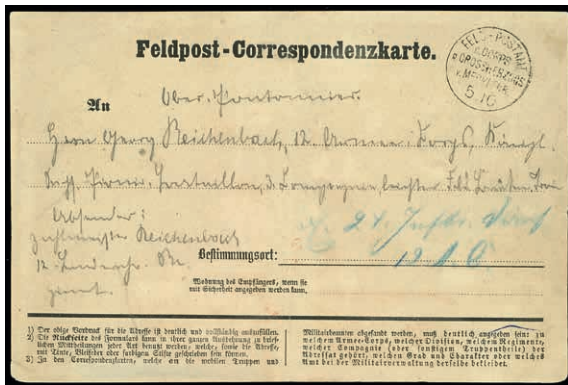 Feldpost-Correspondenzkarte.
FELD-POSTAMT
GROSSHERZOGS
5 10
An Ober-Pontonnier
Herrn Georg Reichenbach, 12. Armee-Corps, Königl.
Sächs. Pionir-Bataillon, 3. Compagnie, leichter Feld
Absender:
Reichenbach
12.
Bestimmungsort:
24. Inftr.
12 A. C.
Wohnung des Empfängers, wenn sie
mit Sicherheit angegeben werden kann.
1) Der obige Vordruck für die Adresse ist deutlich und vollständig auszufüllen.
2) Die Rückseite des Formulars kann in ihrer ganzen Ausdehnung zu brief-
lichen Mittheilungen jeder Art benutzt werden, welche, sowie die Adresse,
mit Tinte, Bleifeder oder farbigem Stifte geschrieben sein können.
3) In den Correspondenzkarten, welche an die mobilen Truppen und
Militairbeamten abgesandt werden, muß deutlich angegeben sein: zu
welchem Armee-Corps, welcher Division, welchem Regimente,
welcher Compagnie (oder sonstigem Truppentheile) der
Adressat gehört, welchen Grad und Charakter oder welches
Amt bei der Militairverwaltung derselbe bekleidet.